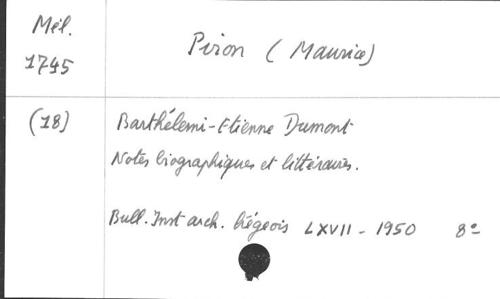 Mél.
1745
Piron (Maurice)
(18)
Barthélemi-Etienne Dumont
Notes biographiques et littéraires.
Bull. Inst arch. liégeois LXVII - 1950 8º